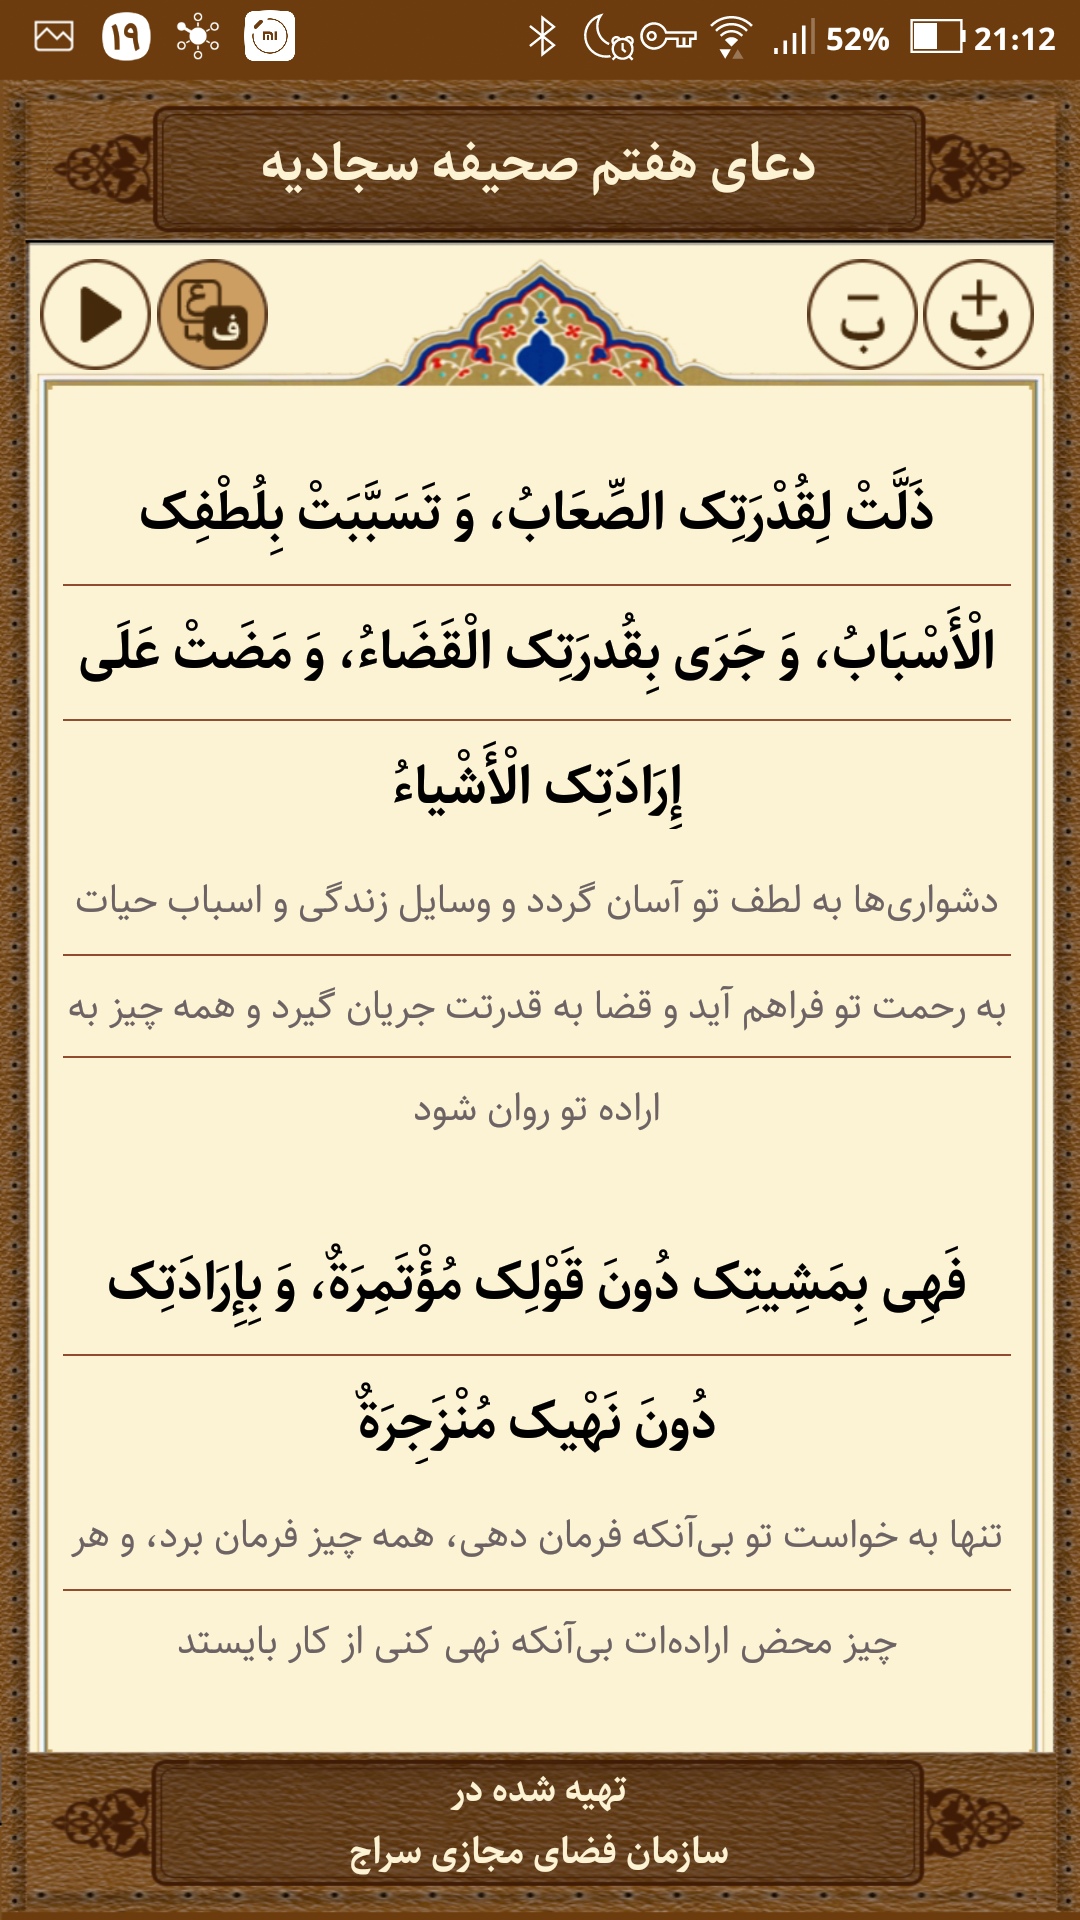 ۱۹
52%
21:12
دعای هفتم صحیفه سجادیه
ذَلَّتْ لِقُدْرَتِک الصِّعَابُ، وَ تَسَبَّبَتْ بِلُطْفِک
الْأَسْبَابُ، وَ جَرَی بِقُدرَتِک الْقَضَاءُ، وَ مَضَتْ عَلَی
إِرَادَتِک الْأَشْیاءُ
دشواری‌ها به لطف تو آسان گردد و وسایل زندگی و اسباب حیات
به رحمت تو فراهم آید و قضا به قدرتت جریان گیرد و همه چیز به
اراده تو روان شود
فَهِی بِمَشِیتِک دُونَ قَوْلِک مُؤْتَمِرَةٌ، وَ بِإِرَادَتِک
دُونَ نَهْیک مُنْزَجِرَةٌ
تنها به خواست تو بی‌آنکه فرمان دهی، همه چیز فرمان برد، و هر
چیز محض اراده‌ات بی‌آنکه نهی کنی از کار بایستد
تهیه شده در
سازمان فضای مجازی سراج